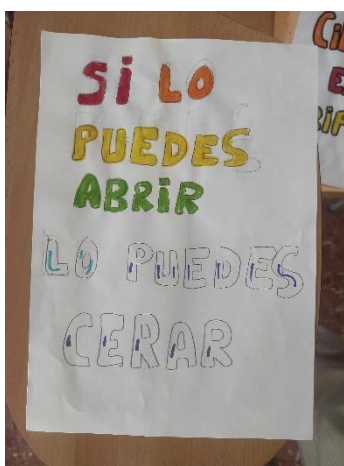 SI LO
PUEDES
ABRIR
LO PUEDES
CERAR